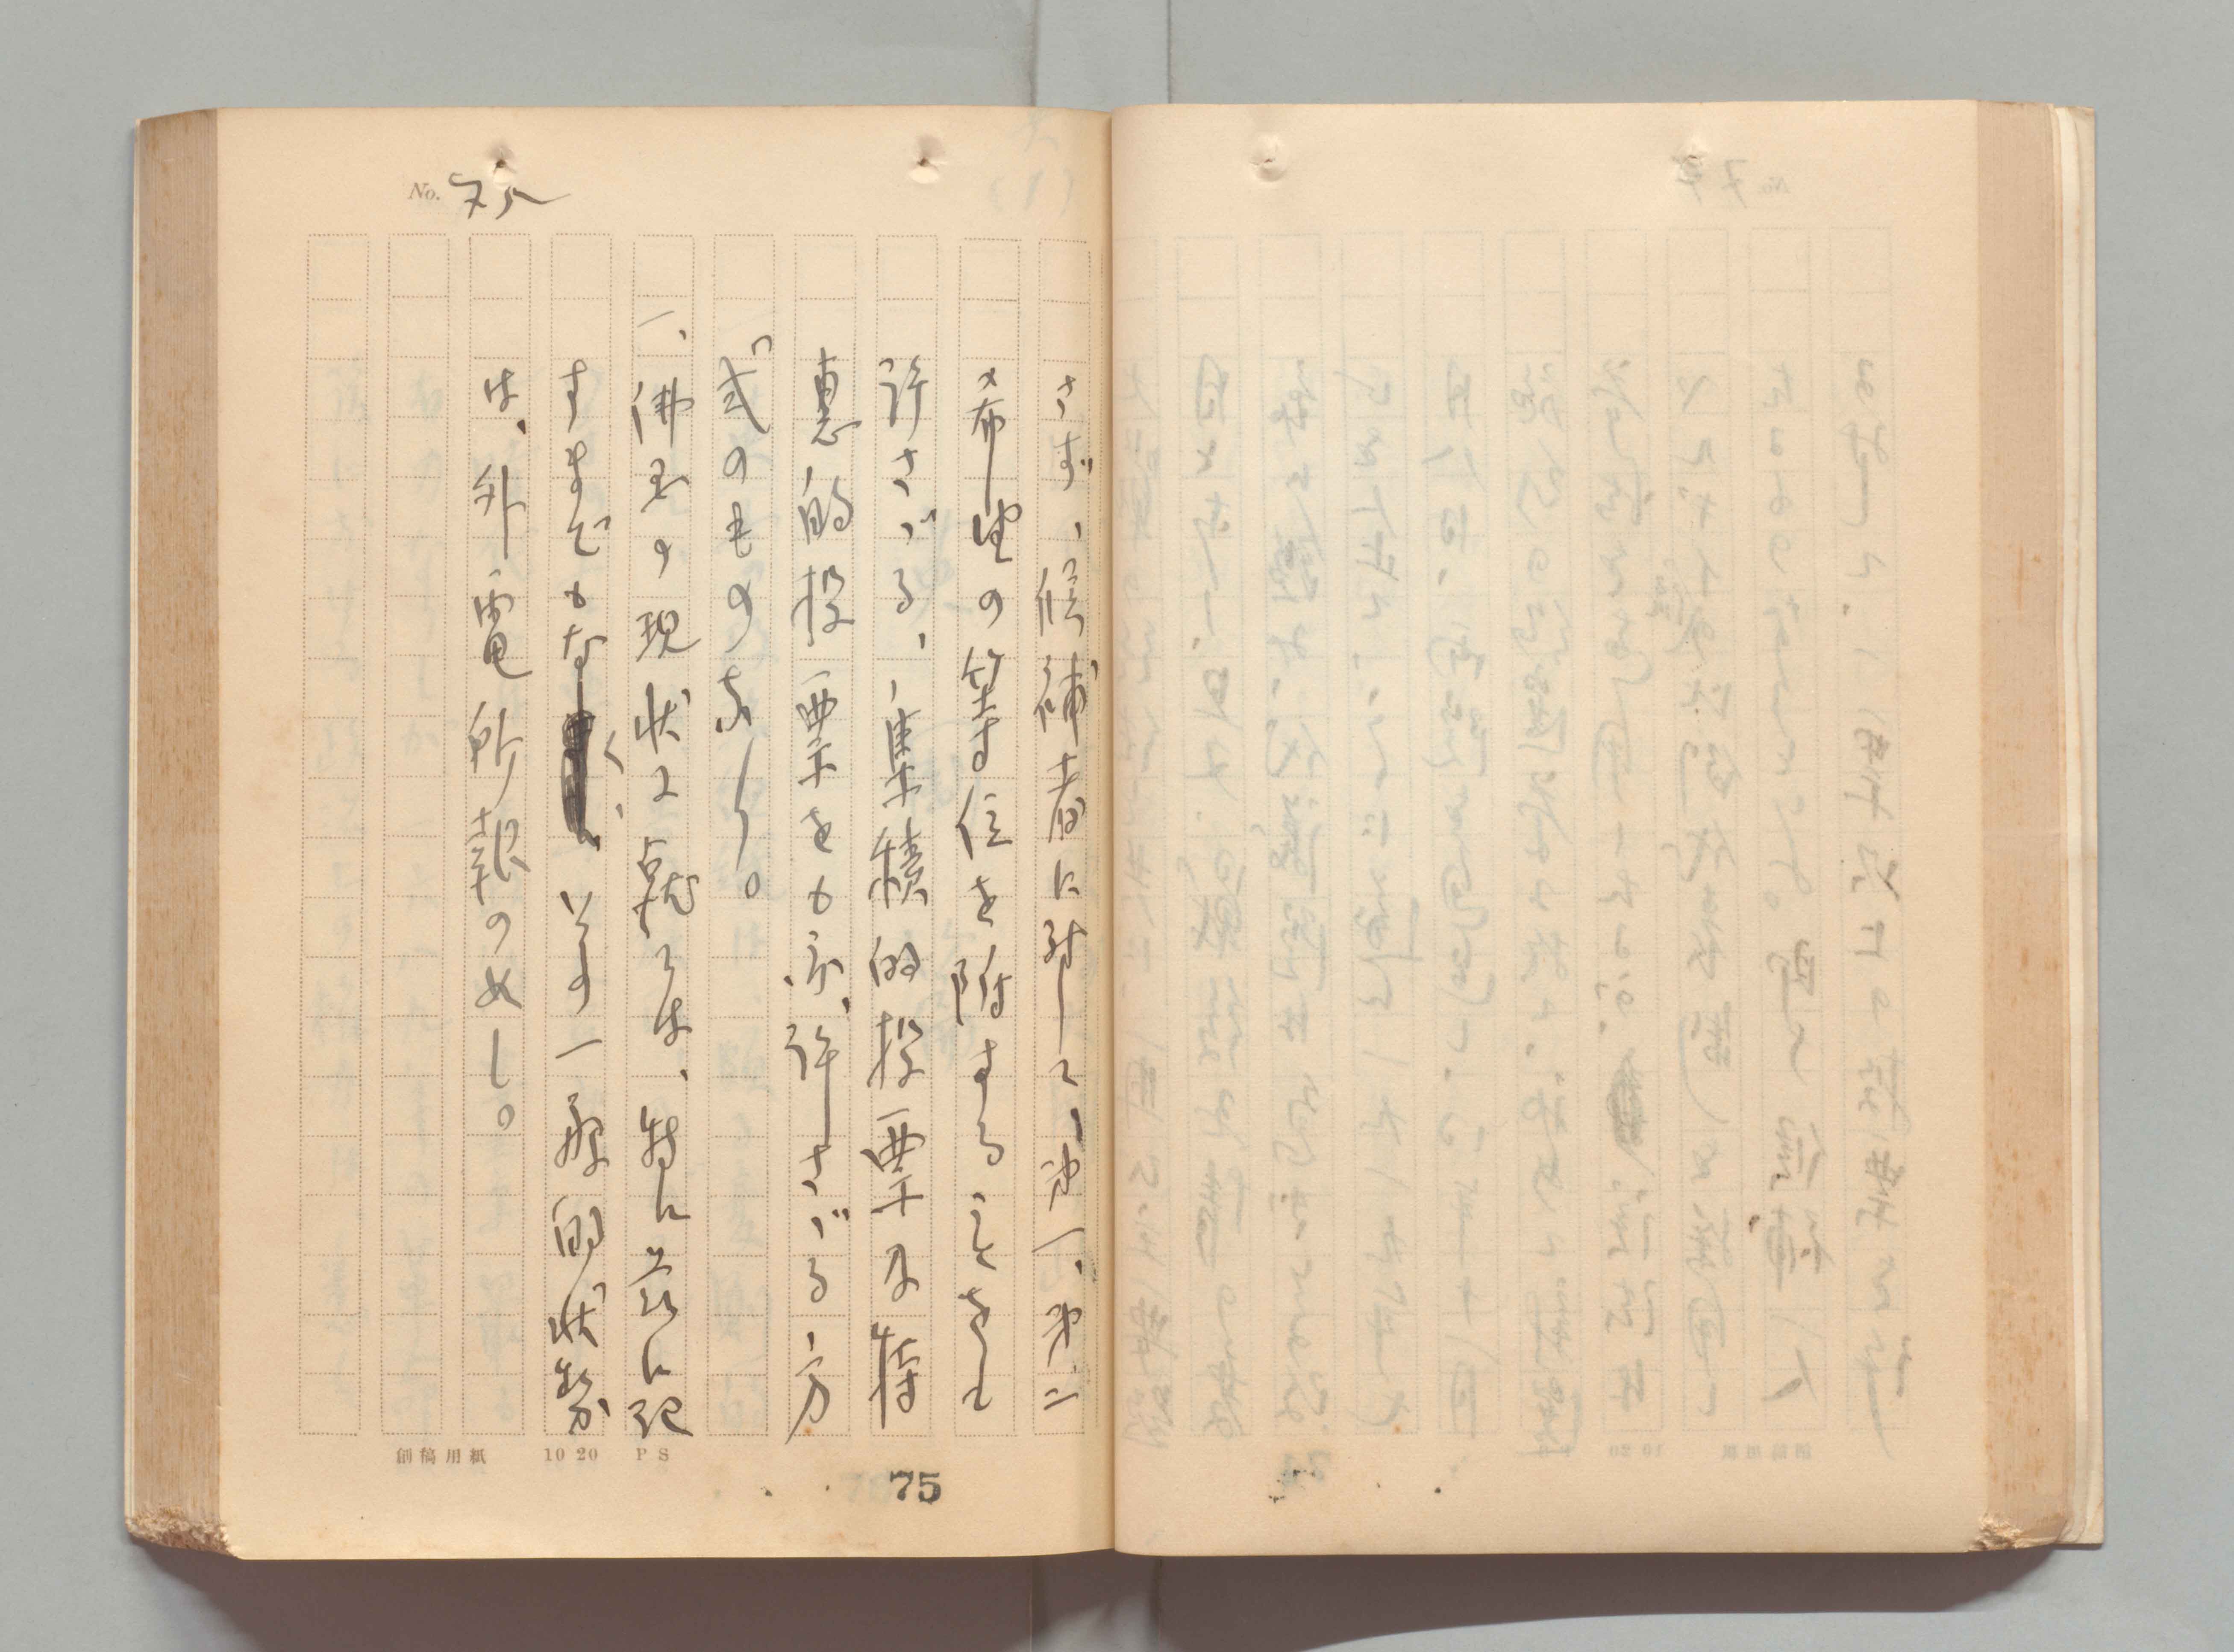 No. 75
さず、候補者に対して、第一、第二
希望の等位を附することをも
許さざる、集積的投票及特
恵的投票をも亦、許さざる方
式のものなり。
一、佛国の現状に就ては、特に茲に記
すまでもなく、その一般的状勢
は、外電所報のめし。
創稿用紙 10 20 P S
75